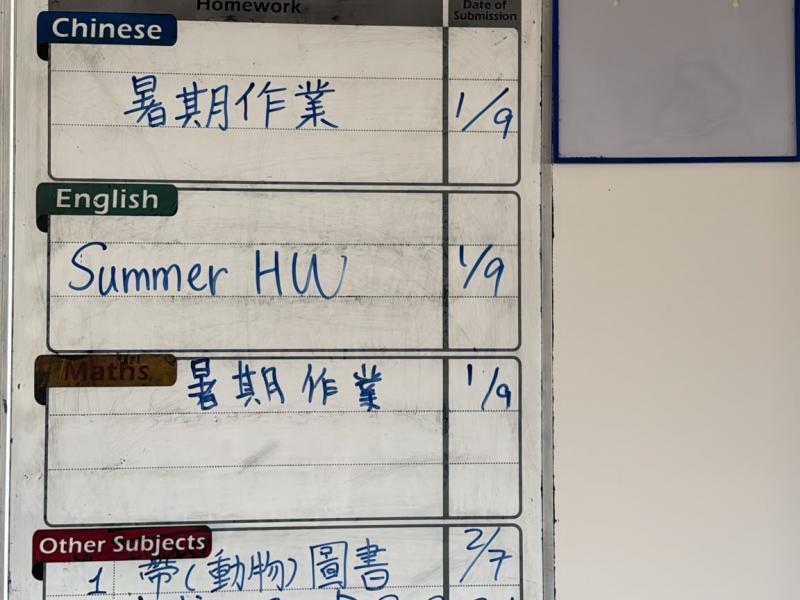 Homework Date of
Submission
Chinese
暑期作業 1/9
English
Summer HW 1/9
Maths 暑期作業 1/9
Other Subjects
1 帶(動物)圖書 2/7